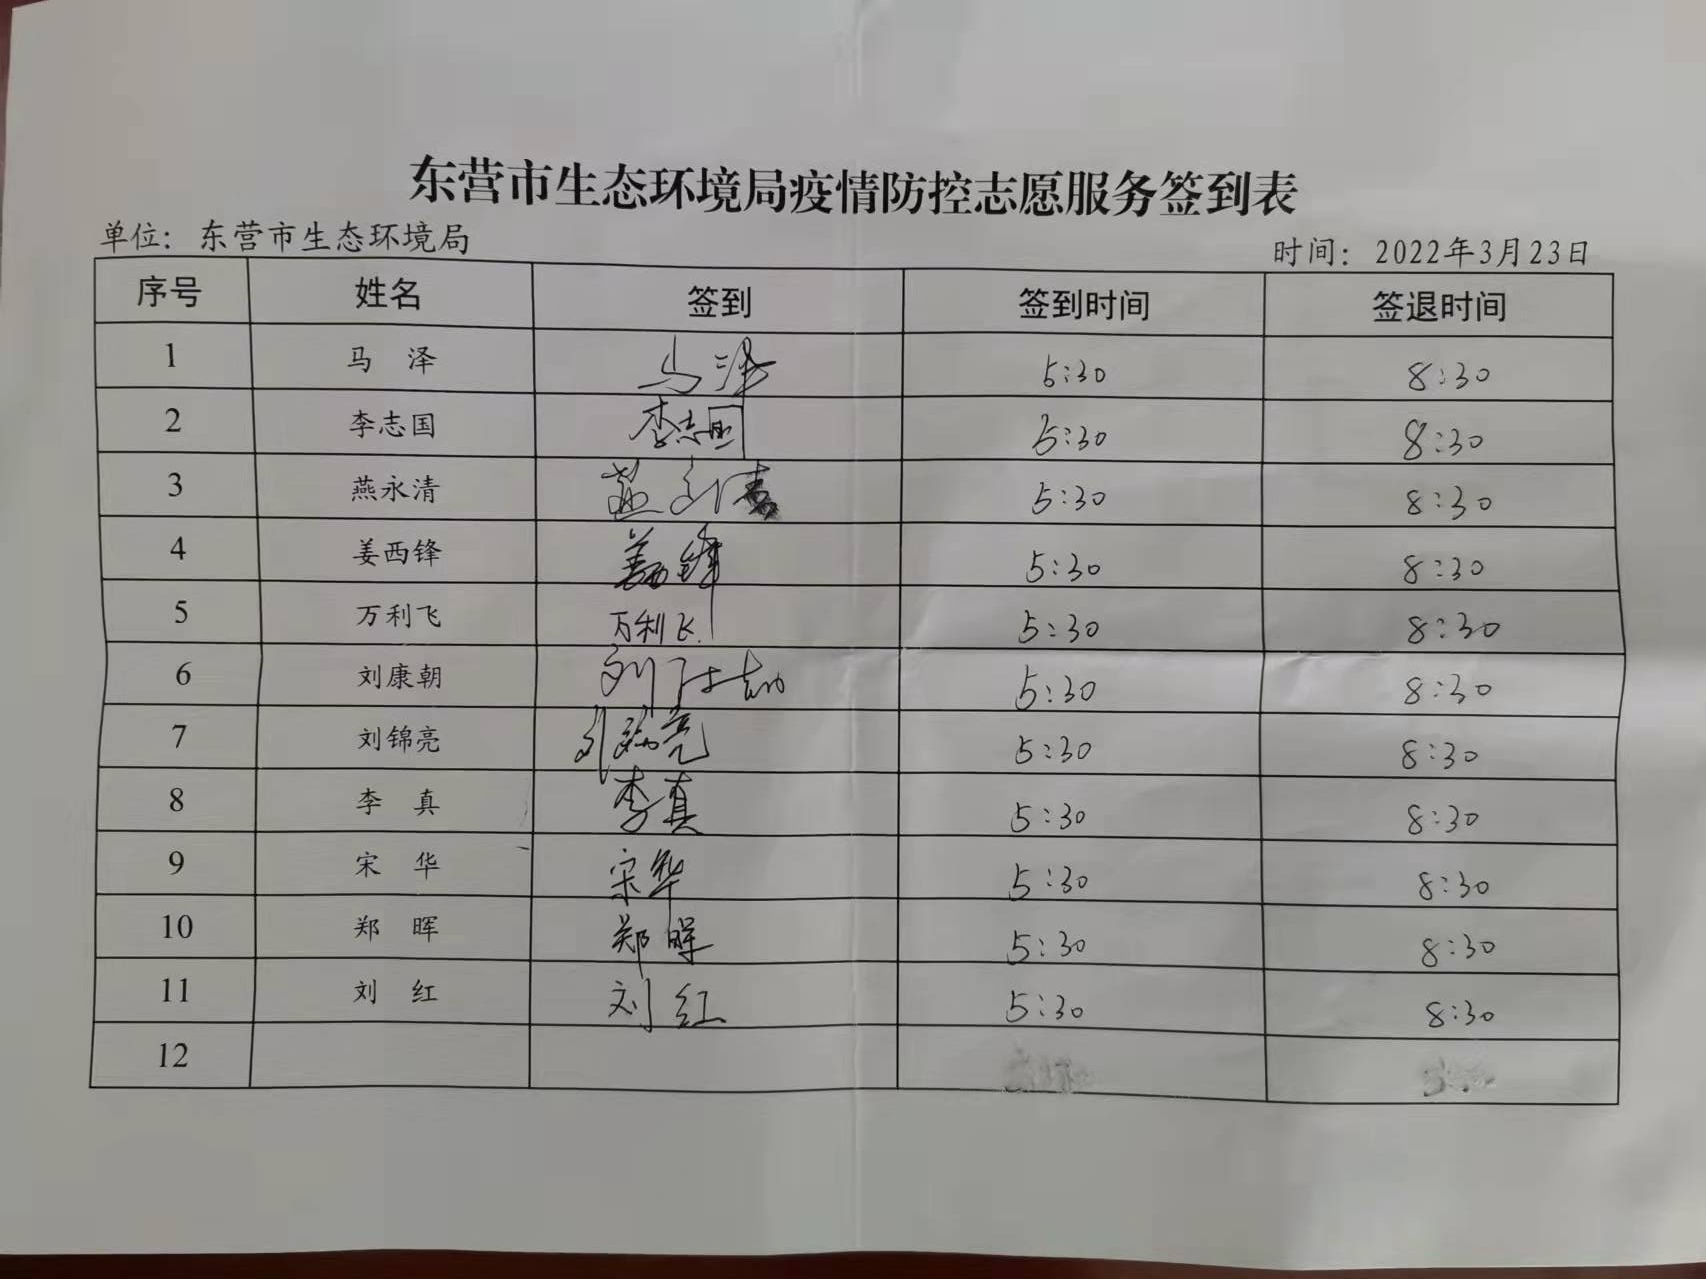 东营市生态环境局疫情防控志愿服务签到表
单位：东营市生态环境局 时间：2022年3月23日
序号 姓名 签到 签到时间 签退时间
1 马泽 马泽 5:30 8:30
2 李志国 李志国 5:30 8:30
3 燕永清 燕永清 5:30 8:30
4 姜西锋 姜西锋 5:30 8:30
5 万利飞 万利飞 5:30 8:30
6 刘康朝 刘康朝 5:30 8:30
7 刘锦亮 刘锦亮 5:30 8:30
8 李真 李真 5:30 8:30
9 宋华 宋华 5:30 8:30
10 郑晖 郑晖 5:30 8:30
11 刘红 刘红 5:30 8:30
12